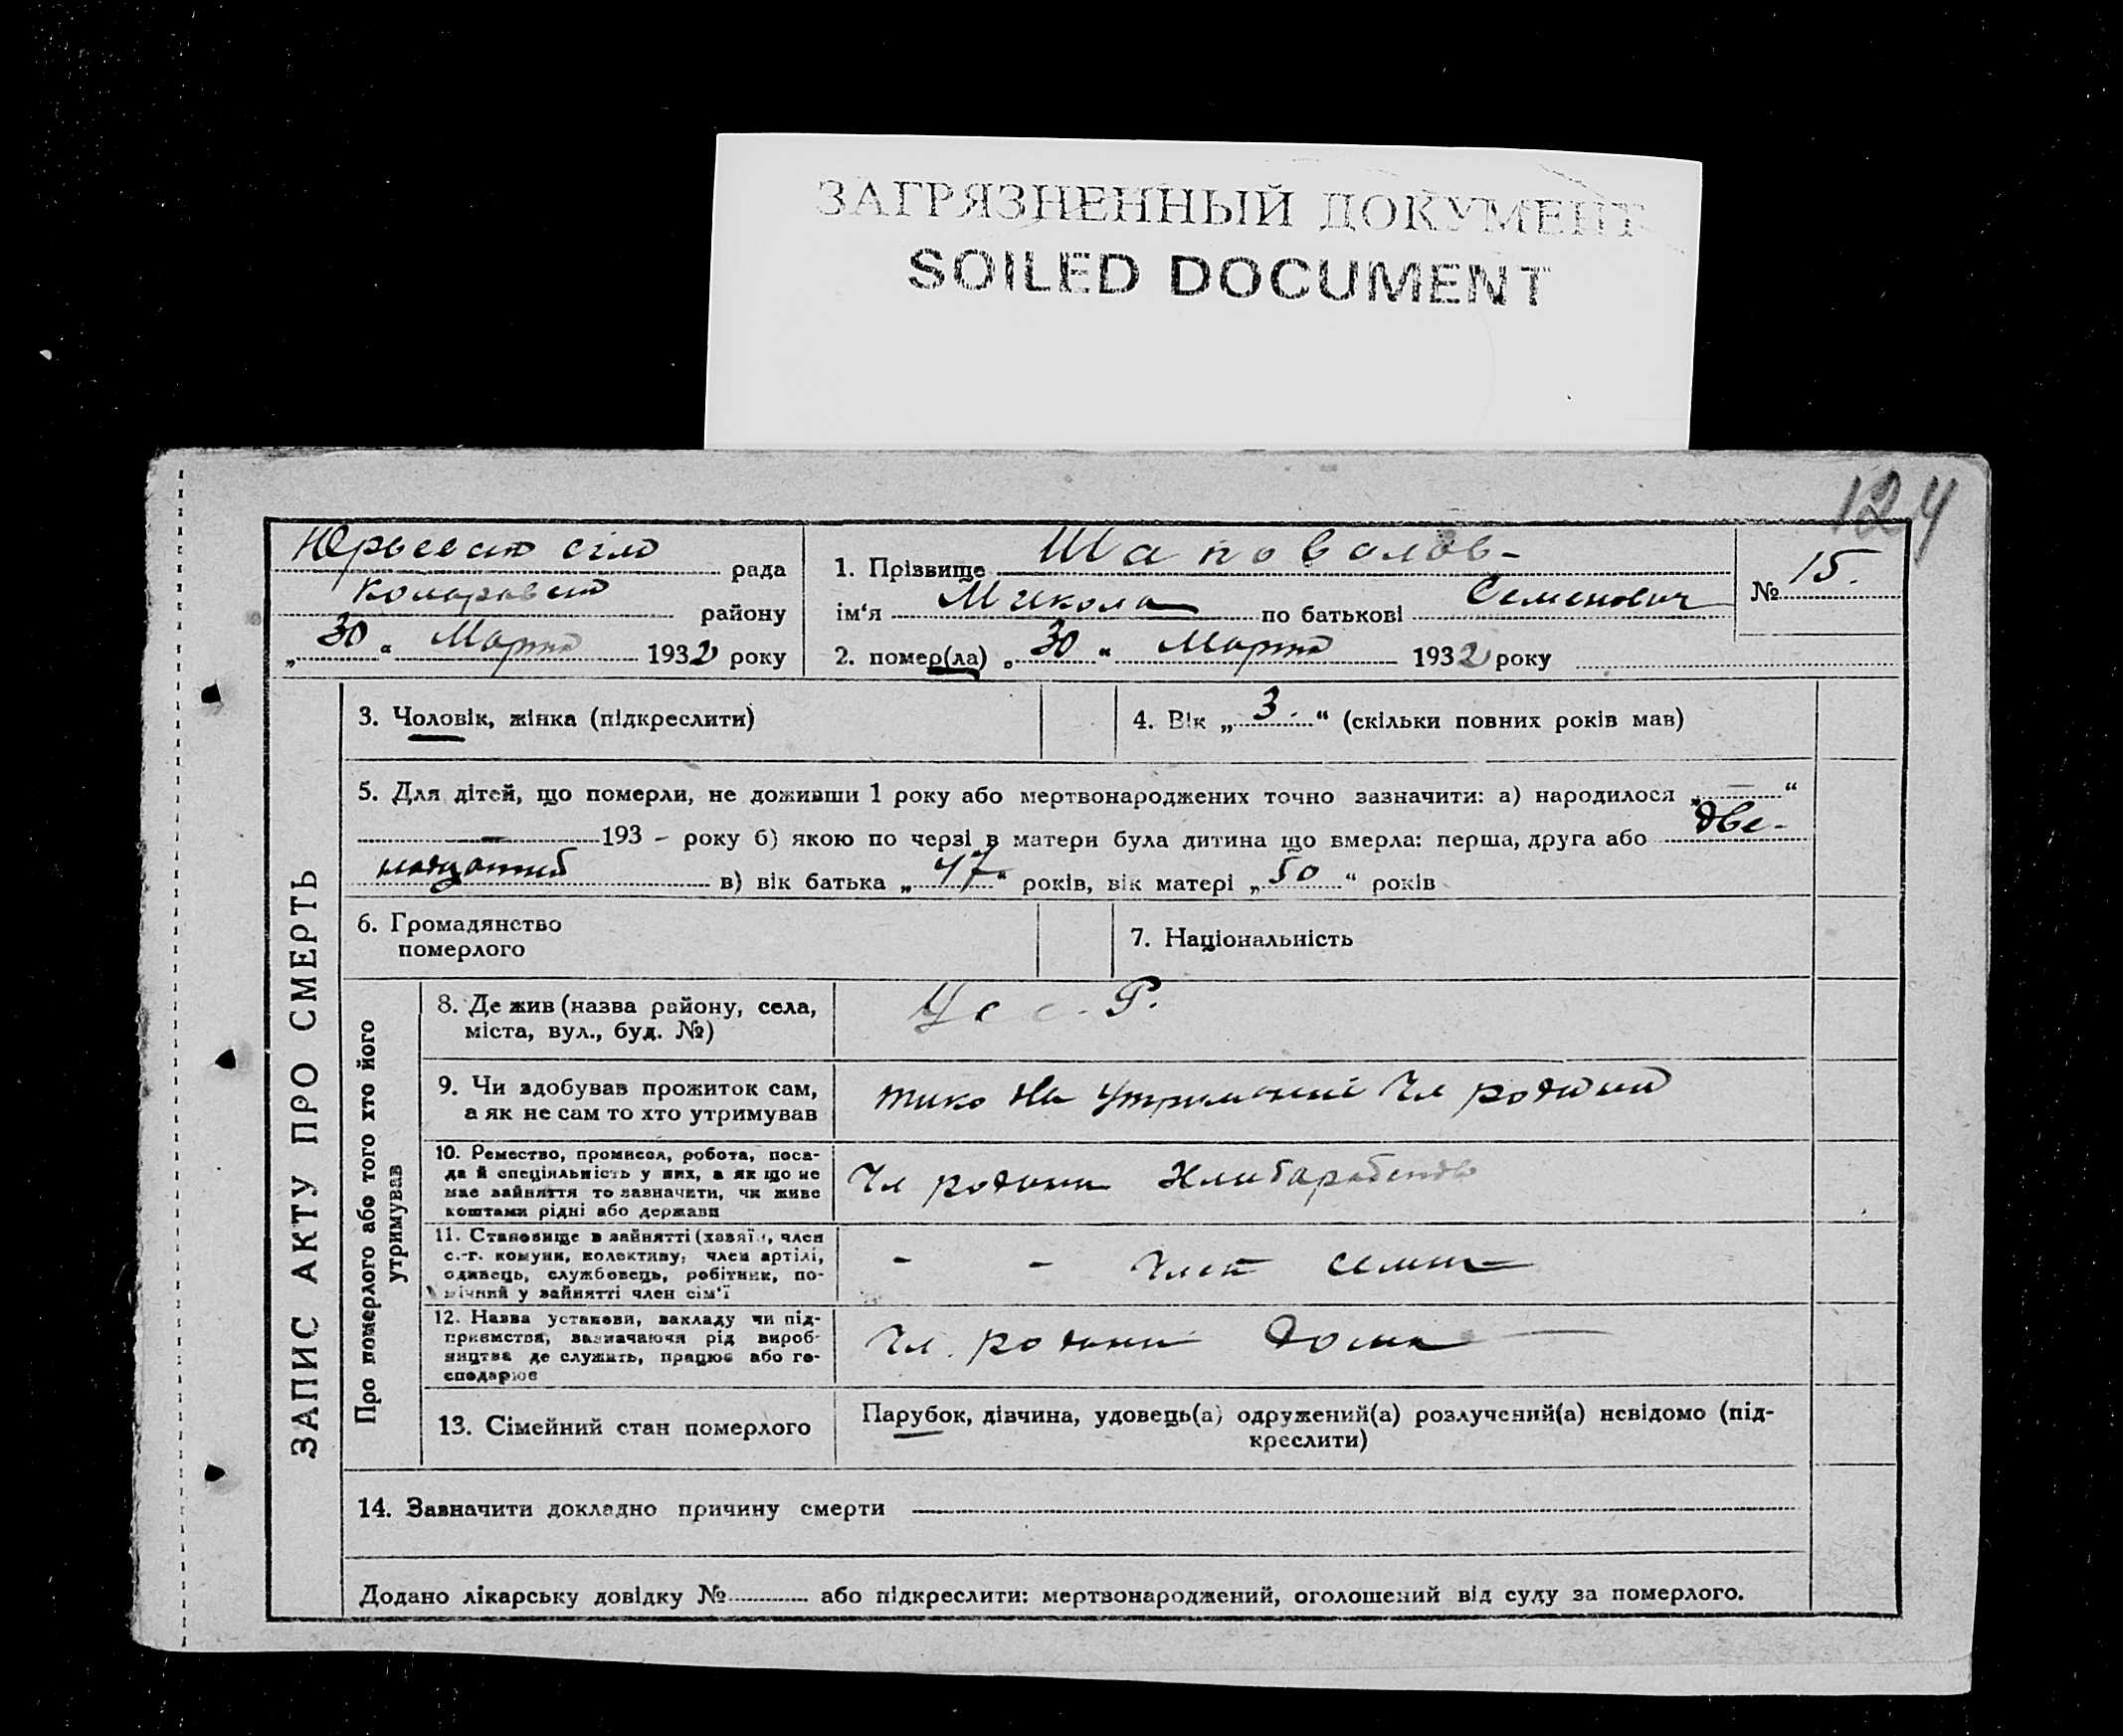 ЗАГРЯЗНЕННЫЙ ДОКУМЕНТ
SOILED DOCUMENT
124
Юрьевст сіло рада
району
„30“ Марта 1932 року
1. Прізвище Шаповалов-
ім‘я Микола по батькові Семенович
№ 15.
2. помер(ла) „30“ Марта 1932 року
ЗАПИС АКТУ ПРО СМЕРТЬ
3. Чоловік, жінка (підкреслити)
4. Вік „3.“ (скільки повних років мав)
5. Для дітей, що померли, не доживши 1 року або мертвонароджених точно зазначити: а) народилося „—“
— 193 – року б) якою по черзі в матери була дитина що вмерла: перша, друга або две-
в) вік батька „47“ років, вік матері „50“ років
6. Громадянство
померлого
7. Національність
Про померлого або того хто його
утримував
8. Де жив (назва району, села,
міста, вул., буд. №)
У с с. Р.
9. Чи здобував прожиток сам,
а як не сам то хто утримував
на утриманні Чл родини
10. Ремество, промисел, робота, поса-
да й спеціяльність у них, а як що не
має зайняття то зазначити, чи живе
коштами рідні або держави
Чл родини
11. Становище в зайнятті (хазяїн, член
с.-г. комуни, колективу, член артілі,
одинець, службовець, робітник, по-
мічний у зайнятті член сім‘ї
- - Член семи
12. Назва установи, закладу чи під-
приємства, зазначаючи рід вироб-
ництва де служить, працює або го-
сподарює
Чл. родини дома
13. Сімейний стан померлого
Парубок, дівчина, удовець(а) одружений(а) розлучений(а) невідомо (під-
креслити)
14. Зазначити докладно причину смерти
Додано лікарську довідку № або підкреслити: мертвонароджений, оголошений від суду за померлого.